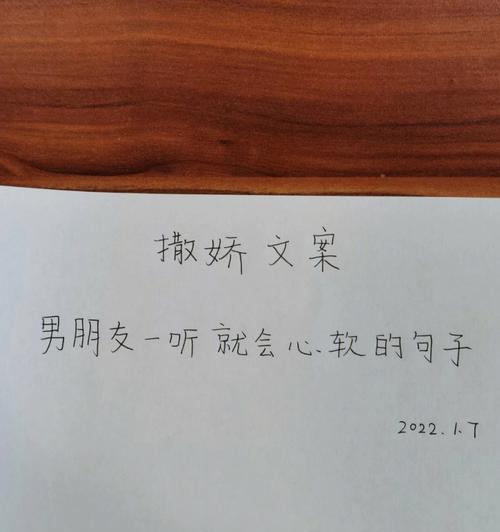 撒娇文案
男朋友一听就会心软的句子
2022.1.7